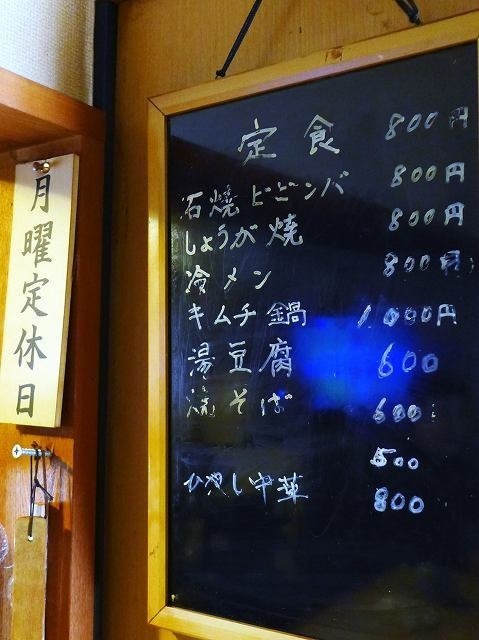 月曜定休日
定食 800円
石焼ビビンバ 800円
しょうが焼 800円
冷メン 800円
キムチ鍋 1,000円
湯豆腐 600
焼そば 600
500
ひやし中華 800